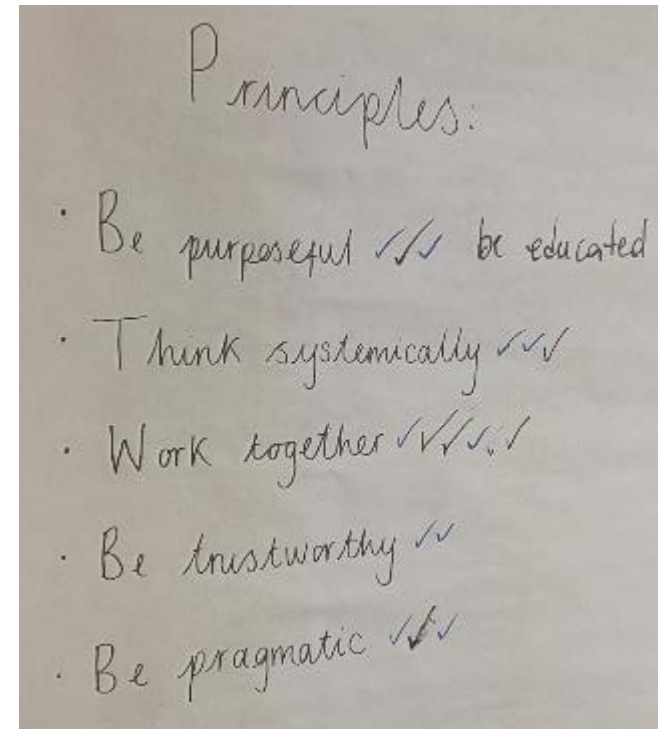 Principles:
· Be purposeful ✓✓✓ be educated
· Think systemically ✓✓✓
· Work together ✓✓✓✓✓
· Be trustworthy ✓✓
· Be pragmatic ✓✓✓